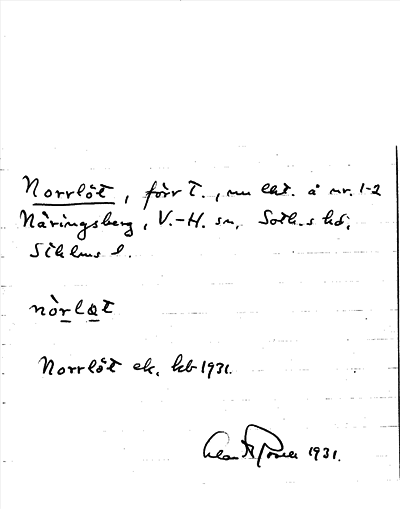 Norrlöt, förr T., nu lht. å nr. 1-2
Näringsberg, V.-H. sn, Soth.s hd,
Sthlms l.
nòrlǝt
Norrlöt ek. kb 1931.
1931.